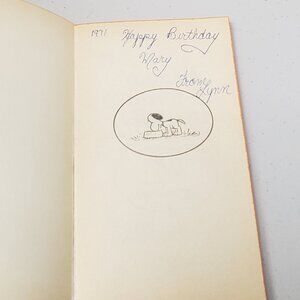 1971 Happy Birthday
Mary
From
Lynn